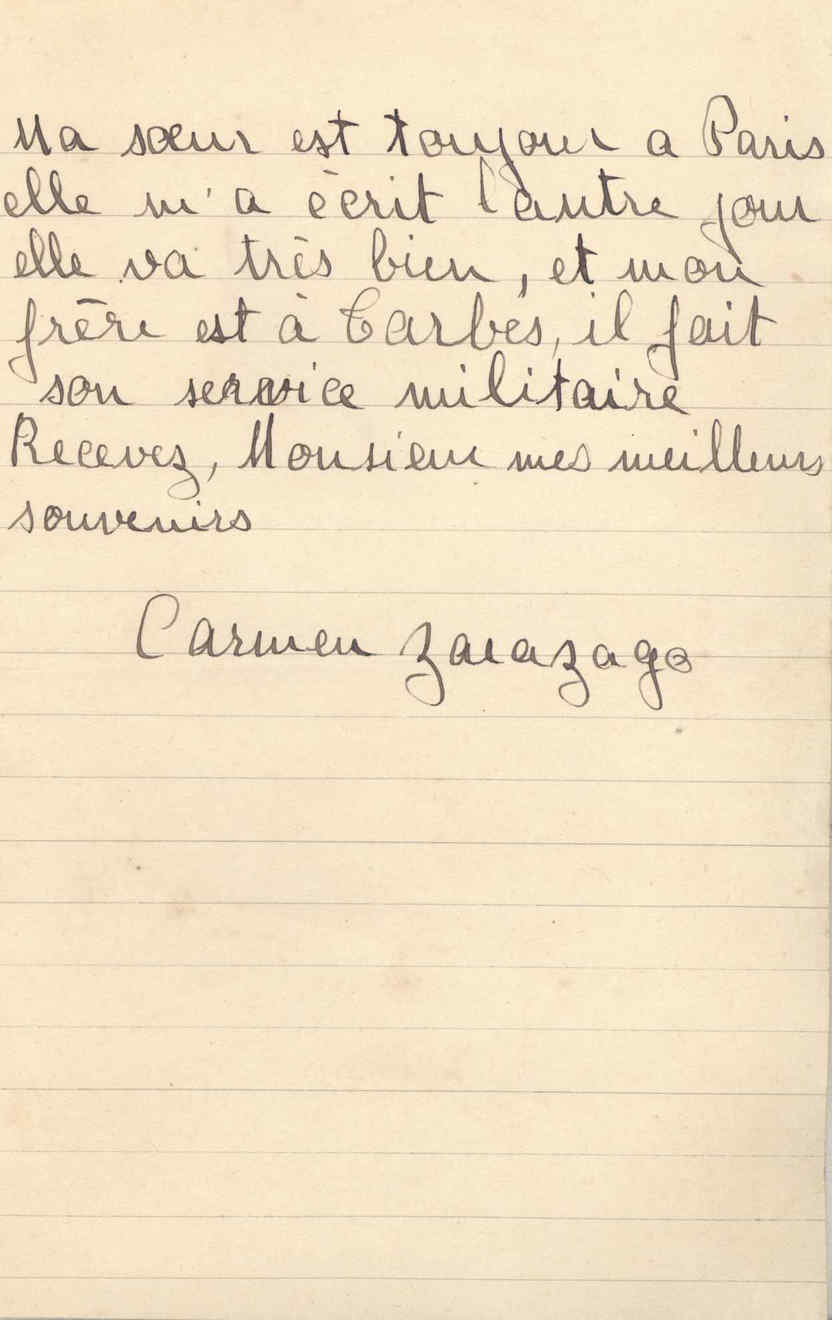 Ma sœur est toujour a Paris
elle m'a écrit l'autre jour
elle va très bien, et mon
frère est à Tarbes, il fait
son service militaire
Recevez, Monsieur mes meilleurs
souvenirs
Carmen